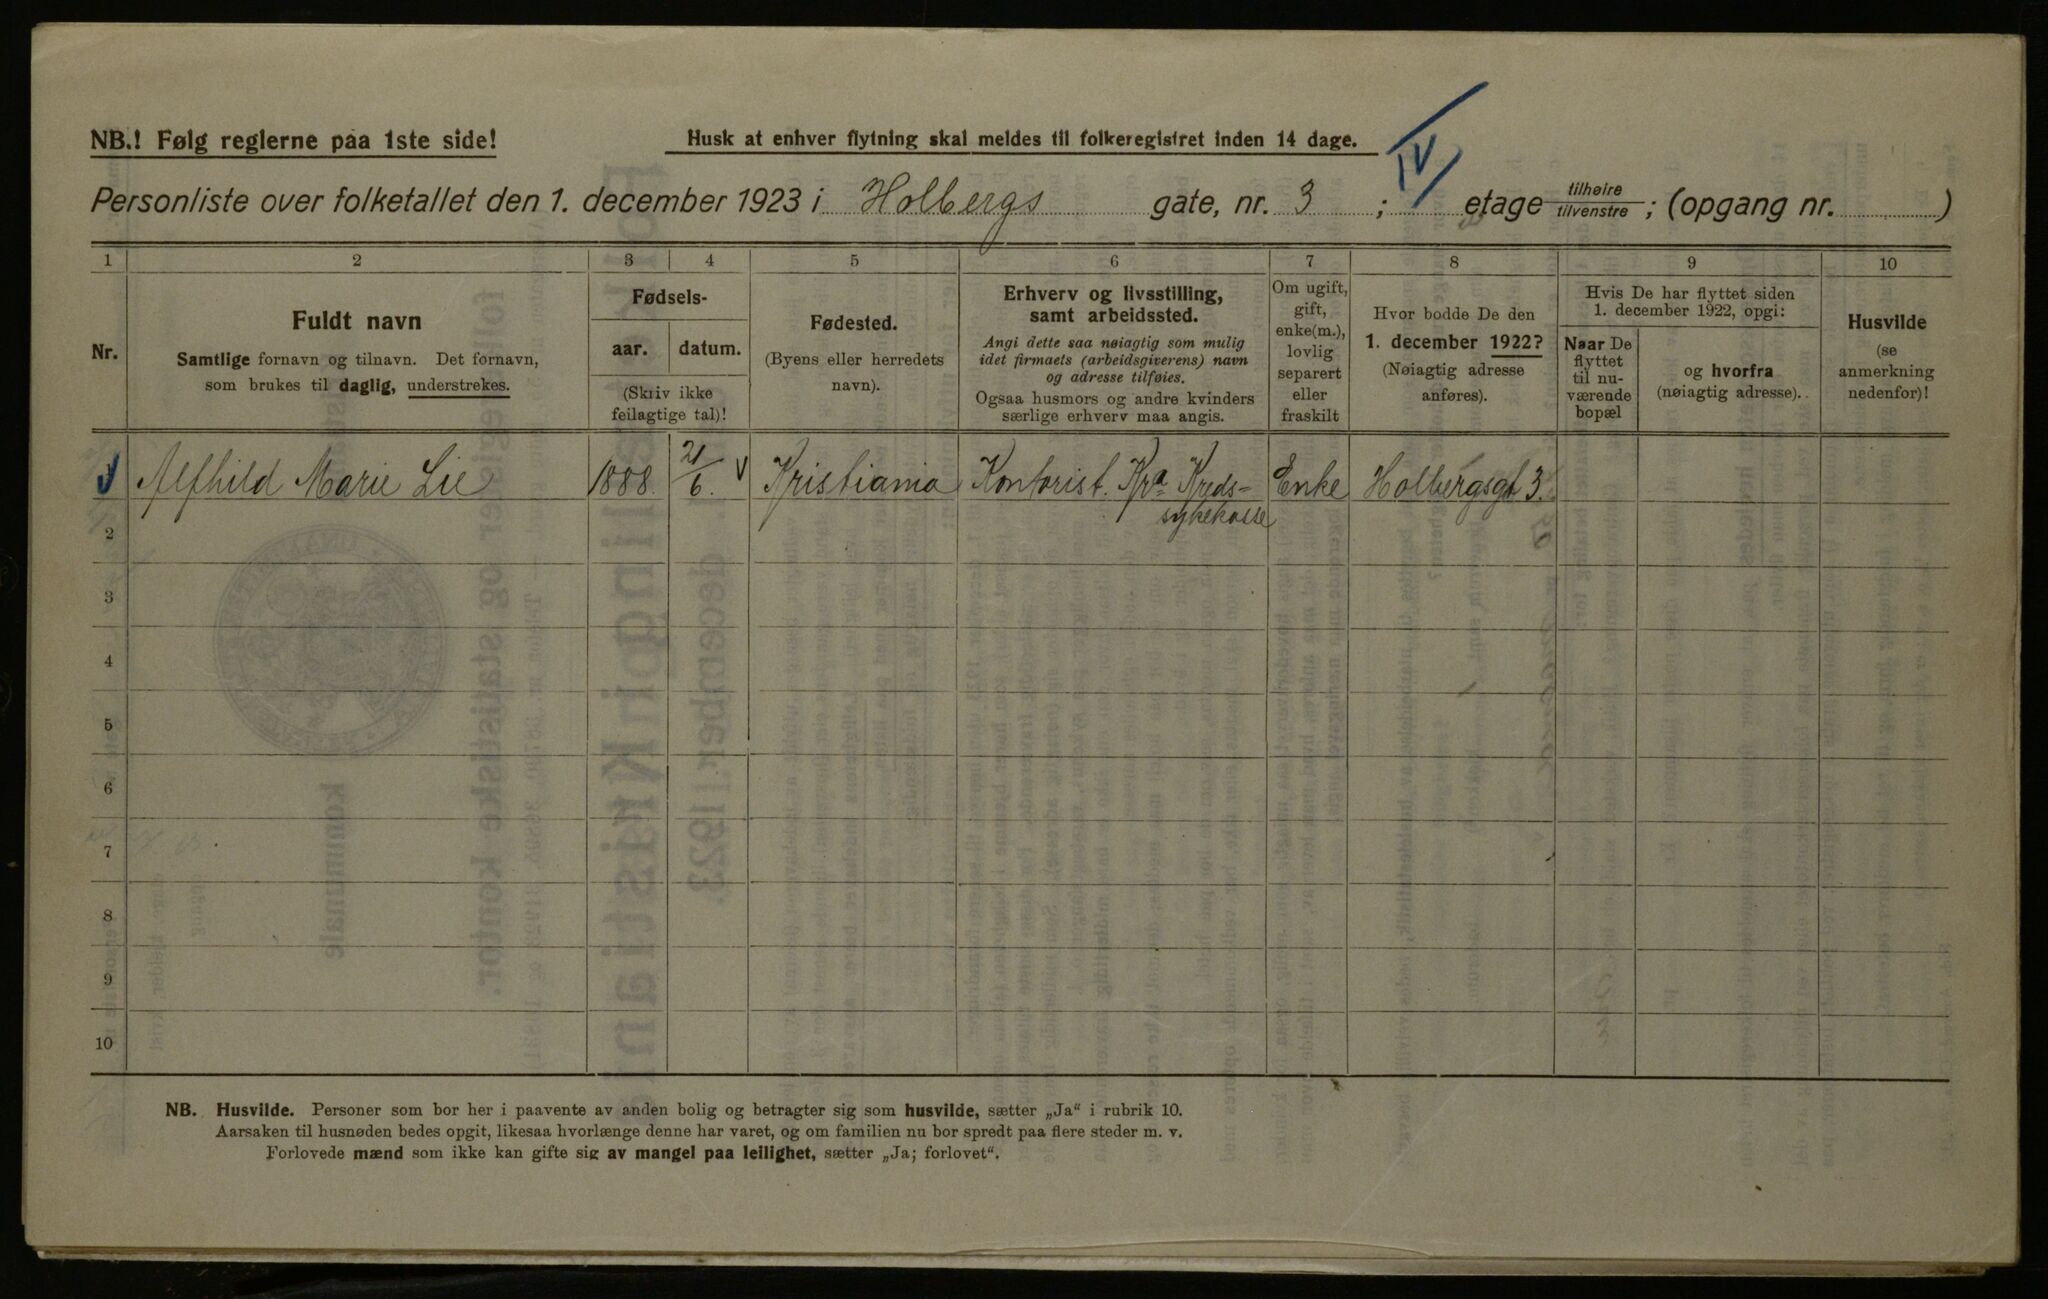 NB.! Følg reglerne paa 1ste side!
Husk at enhver flytning skal meldes til folkeregistret inden 14 dage.
Personliste over folketallet den 1. december 1923 i Holbergs gate, nr. 3 ; IV etage tilhøire tilvenstre ; (opgang nr. )
1 2 3 4 5 6 7 8 9 10
Nr.
Fuldt navn
Samtlige fornavn og tilnavn. Det fornavn,
som brukes til daglig, understrekes.
Fødsels-
aar. datum.
(Skriv ikke
feilagtige tal)!
Fødested.
(Byens eller herredets
navn).
Erhverv og livsstilling,
samt arbeidssted.
Angi dette saa nøiagtig som mulig
idet firmaets (arbeidsgiverens) navn
og adresse tilføies.
Ogsaa husmors og andre kvinders
særlige erhverv maa angis.
Om ugift,
gift,
enke(m.),
lovlig
separert
eller
fraskilt
Hvor bodde De den
1. december 1922?
(Nøiagtig adresse
anføres).
Hvis De har flyttet siden
1. december 1922, opgi:
Naar De
flyttet
til nu-
værende
bopæl
og hvorfra
(nøiagtig adresse).
Husvilde
(se
anmerkning
nedenfor)!
1 Alfhild Marie Lie 1888. 21/6. Kristiania Kontorist. Kra Kreds- Enke Holbergsgt 3.
sykekasse
2
3
4
5
6
7
8
9
10
NB. Husvilde. Personer som bor her i paavente av anden bolig og betragter sig som husvilde, sætter „Ja" i rubrik 10.
Aarsaken til husnøden bedes opgit, likesaa hvorlænge denne har varet, og om familien nu bor spredt paa flere steder m. v.
Forlovede mænd som ikke kan gifte sig av mangel paa leilighet, sætter „Ja; forlovet".